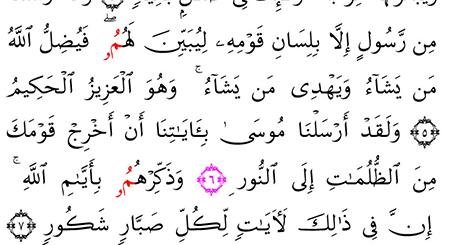 مِن رَّسُولٍ إِلَّا بِلِسَانِ قَوْمِهِۦ لِيُبَيِّنَ لَهُمُۥ ۖ فَيُضِلُّ ٱللَّهُ
مَن يَشَآءُ وَيَهْدِى مَن يَشَآءُ ۚ وَهُوَ ٱلْعَزِيزُ ٱلْحَكِيمُ
﴿٥﴾ وَلَقَدْ أَرْسَلْنَا مُوسَىٰ بِـَٔايَـٰتِنَآ أَنْ أَخْرِجْ قَوْمَكَ
مِنَ ٱلظُّلُمَـٰتِ إِلَى ٱلنُّورِ ﴿٦﴾ وَذَكِّرْهُمُۥ بِأَيَّىٰمِ ٱللَّهِ ۚ
إِنَّ فِى ذَٰلِكَ لَـَٔايَـٰتٍ لِّكُلِّ صَبَّارٍ شَكُورٍ ﴿٧﴾